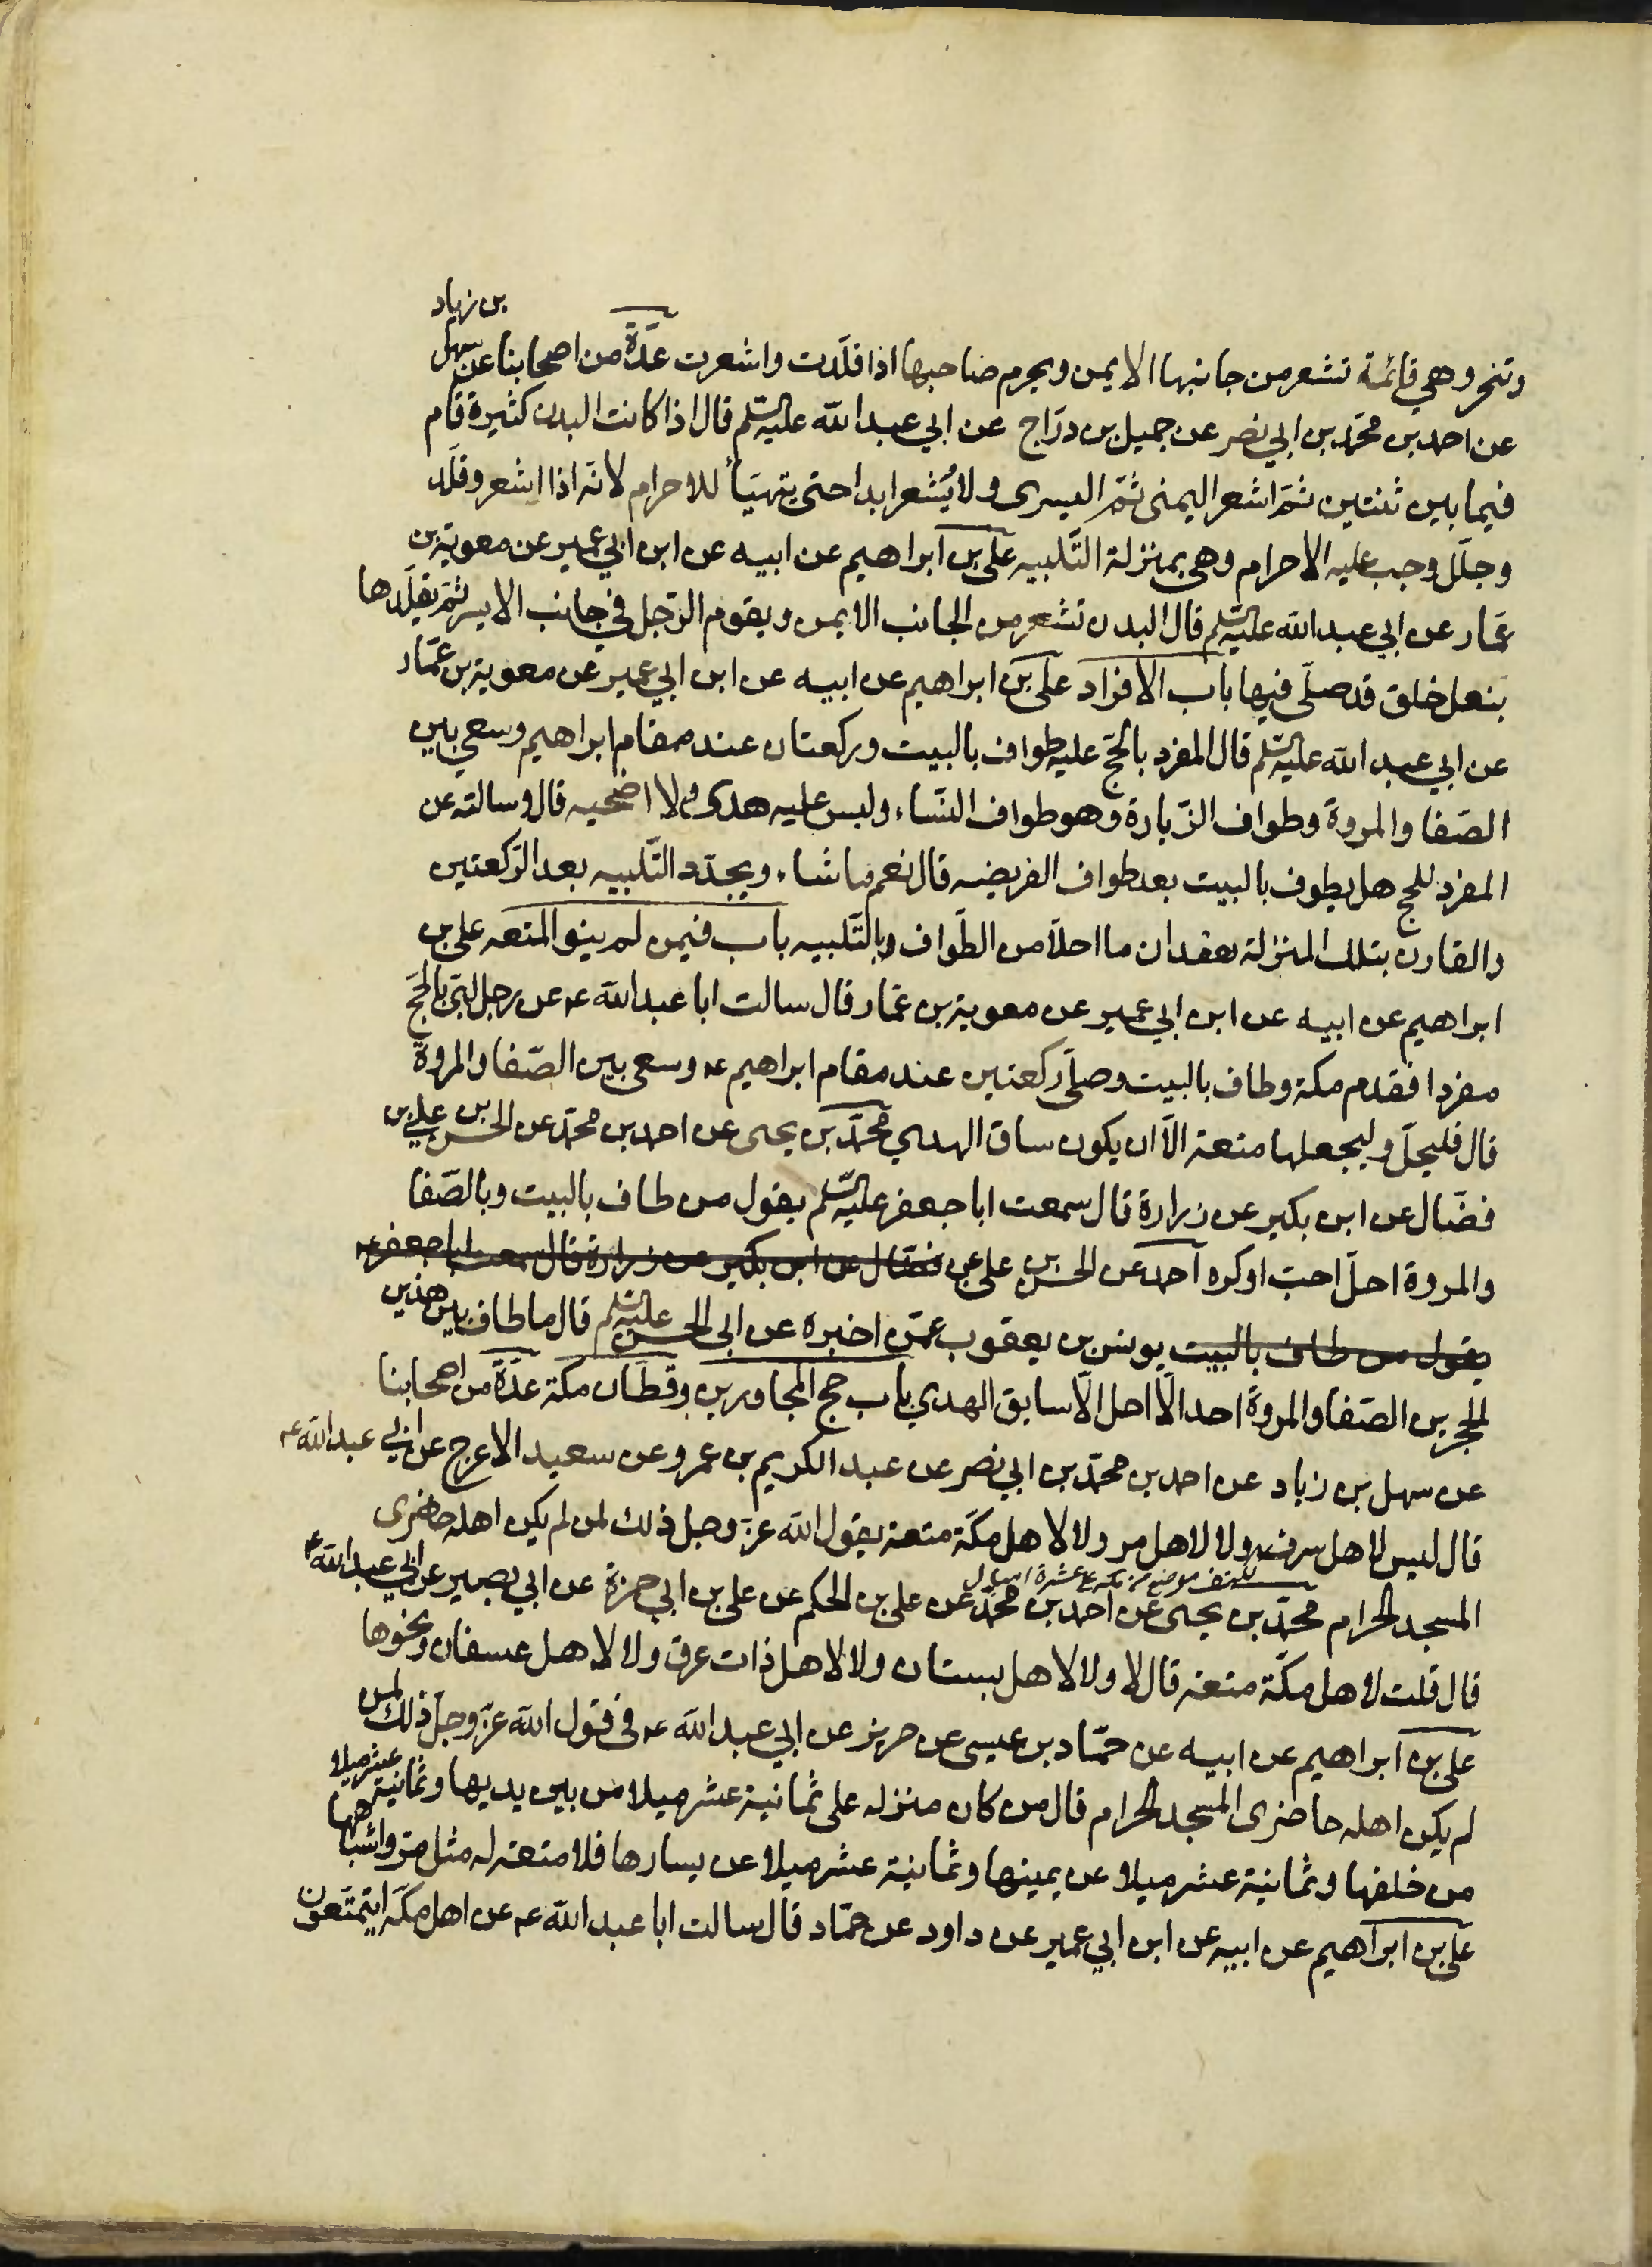 وتنحر وهي قائمة تشعر من جانبها الايمن ويحرم صاحبها اذا قلّدت واشعرت عدّة من اصحابنا عن سهل
بن زياد
عن احمد بن محمّد بن ابي نصر عن جميل بن درّاج عن ابي عبد الله عليه السّلم قال اذا كانت البدن كثيرة قام
فيما بين ثنتين ثمّ اشعر اليمنى ثمّ اليسرى ولا يُشعر ابدا حتى يتهيّأ للاحرام لانّه اذا اشعر وقلّد
وجلّل وجب عليه الاحرام وهى بمنزلة التّلبيه على بن ابراهيم عن ابيه عن ابن ابي عمير عن معوية بن
عمّار عن ابي عبد الله عليه السّلم قال البدن تشعر من الجانب الايمن ويقوم الرّجل في جانب الايسر ثمّ يقلّدها
بنعل خلق قد صلّى فيها باب الافراد على بن ابراهيم عن ابيه عن ابن ابي عمير عن معوية بن عمّار
عن ابي عبد الله عليه السّلم قال المفرد بالحجّ عليه طواف بالبيت وركعتان عند مقام ابراهيم وسعي بين
الصّفا والمروة وطواف الزّيارة وهو طواف النّساء وليس عليه هدى ولا اضحيه قال وسالته عن
المفرد للحج هل يطوف بالبيت بعد طواف الفريضه قال نعم ما شاء ويجدّد التّلبيه بعد الرّكعتين
والقارن بتلك المنزلة يعقدان ما احلّا من الطّواف بالتّلبيه باب فيمن لم ينو المتعه على بن
ابراهيم عن ابيه عن ابن ابي عمير عن معوية بن عمّار قال سالت ابا عبد الله ع عن رجل لبّى بالحجّ
مفردا فقدم مكة وطاف بالبيت وصلّى ركعتين عند مقام ابراهيم ع وسعى بين الصّفا والمروة
قال فليحلّ وليجعلها متعة الّا ان يكون ساق الهدي محمّد بن يحيى عن احمد بن محمّد عن الحسن بن علي بن
فضّال عن ابن بكير عن زرارة قال سمعت ابا جعفر عليه السّلم يقول من طاف بالبيت وبالصّفا
والمروة احلّ احبّ او كره احمد عن الحسن بن على عن فضّال عن ابن بكير عن زرارة قال سمعت ابا جعفر ع
يقول من طاف بالبيت يونس بن يعقوب عمّن اخبره عن ابى الحسن عليه السّلم قال ما طاف بين هذين
الحجرين الصّفا والمروة احد الّا احل الّا سابق الهدي باب حج المجاورين وقطّان مكة عدّة من اصحابنا
عن سهل بن زياد عن احمد بن محمّد بن ابي نصر عن عبد الكريم بن عمرو عن سعيد الاعرج عن ابي عبد الله ع
قال ليس لاهل سرف ولا لاهل مر ولا لاهل مكّة متعة يقول الله عزّ وجل ذلك لمن لم يكن اهله حاضرى
ككتف موضع من مكه على عشرة اميال
المسجد الحرام محمّد بن يحيى عن احمد بن محمّد عن على بن الحكم عن على بن ابي حمزة عن ابي بصير عن ابي عبد الله ع
قال قلت لاهل مكّة متعة قال لا ولا لاهل بستان ولا لاهل ذات عرق ولا لاهل عسفان ونحوها
على بن ابراهيم عن ابيه عن حمّاد بن عيسى عن حريز عن ابي عبد الله ع فى قول الله عزّ وجلّ ذلك لمن
لم يكن اهله حاضرى المسجد الحرام قال من كان منزله على ثمانية عشر ميلا من بين يديها وثمانية عشر ميلا
من خلفها وثمانية عشر ميلا عن يمينها وثمانية عشر ميلا عن يسارها فلا متعة له مثل مرّ واشباهها
على بن ابراهيم عن ابيه عن ابن ابي عمير عن داود عن حمّاد قال سالت ابا عبد الله ع عن اهل مكّة ايتمتّعون